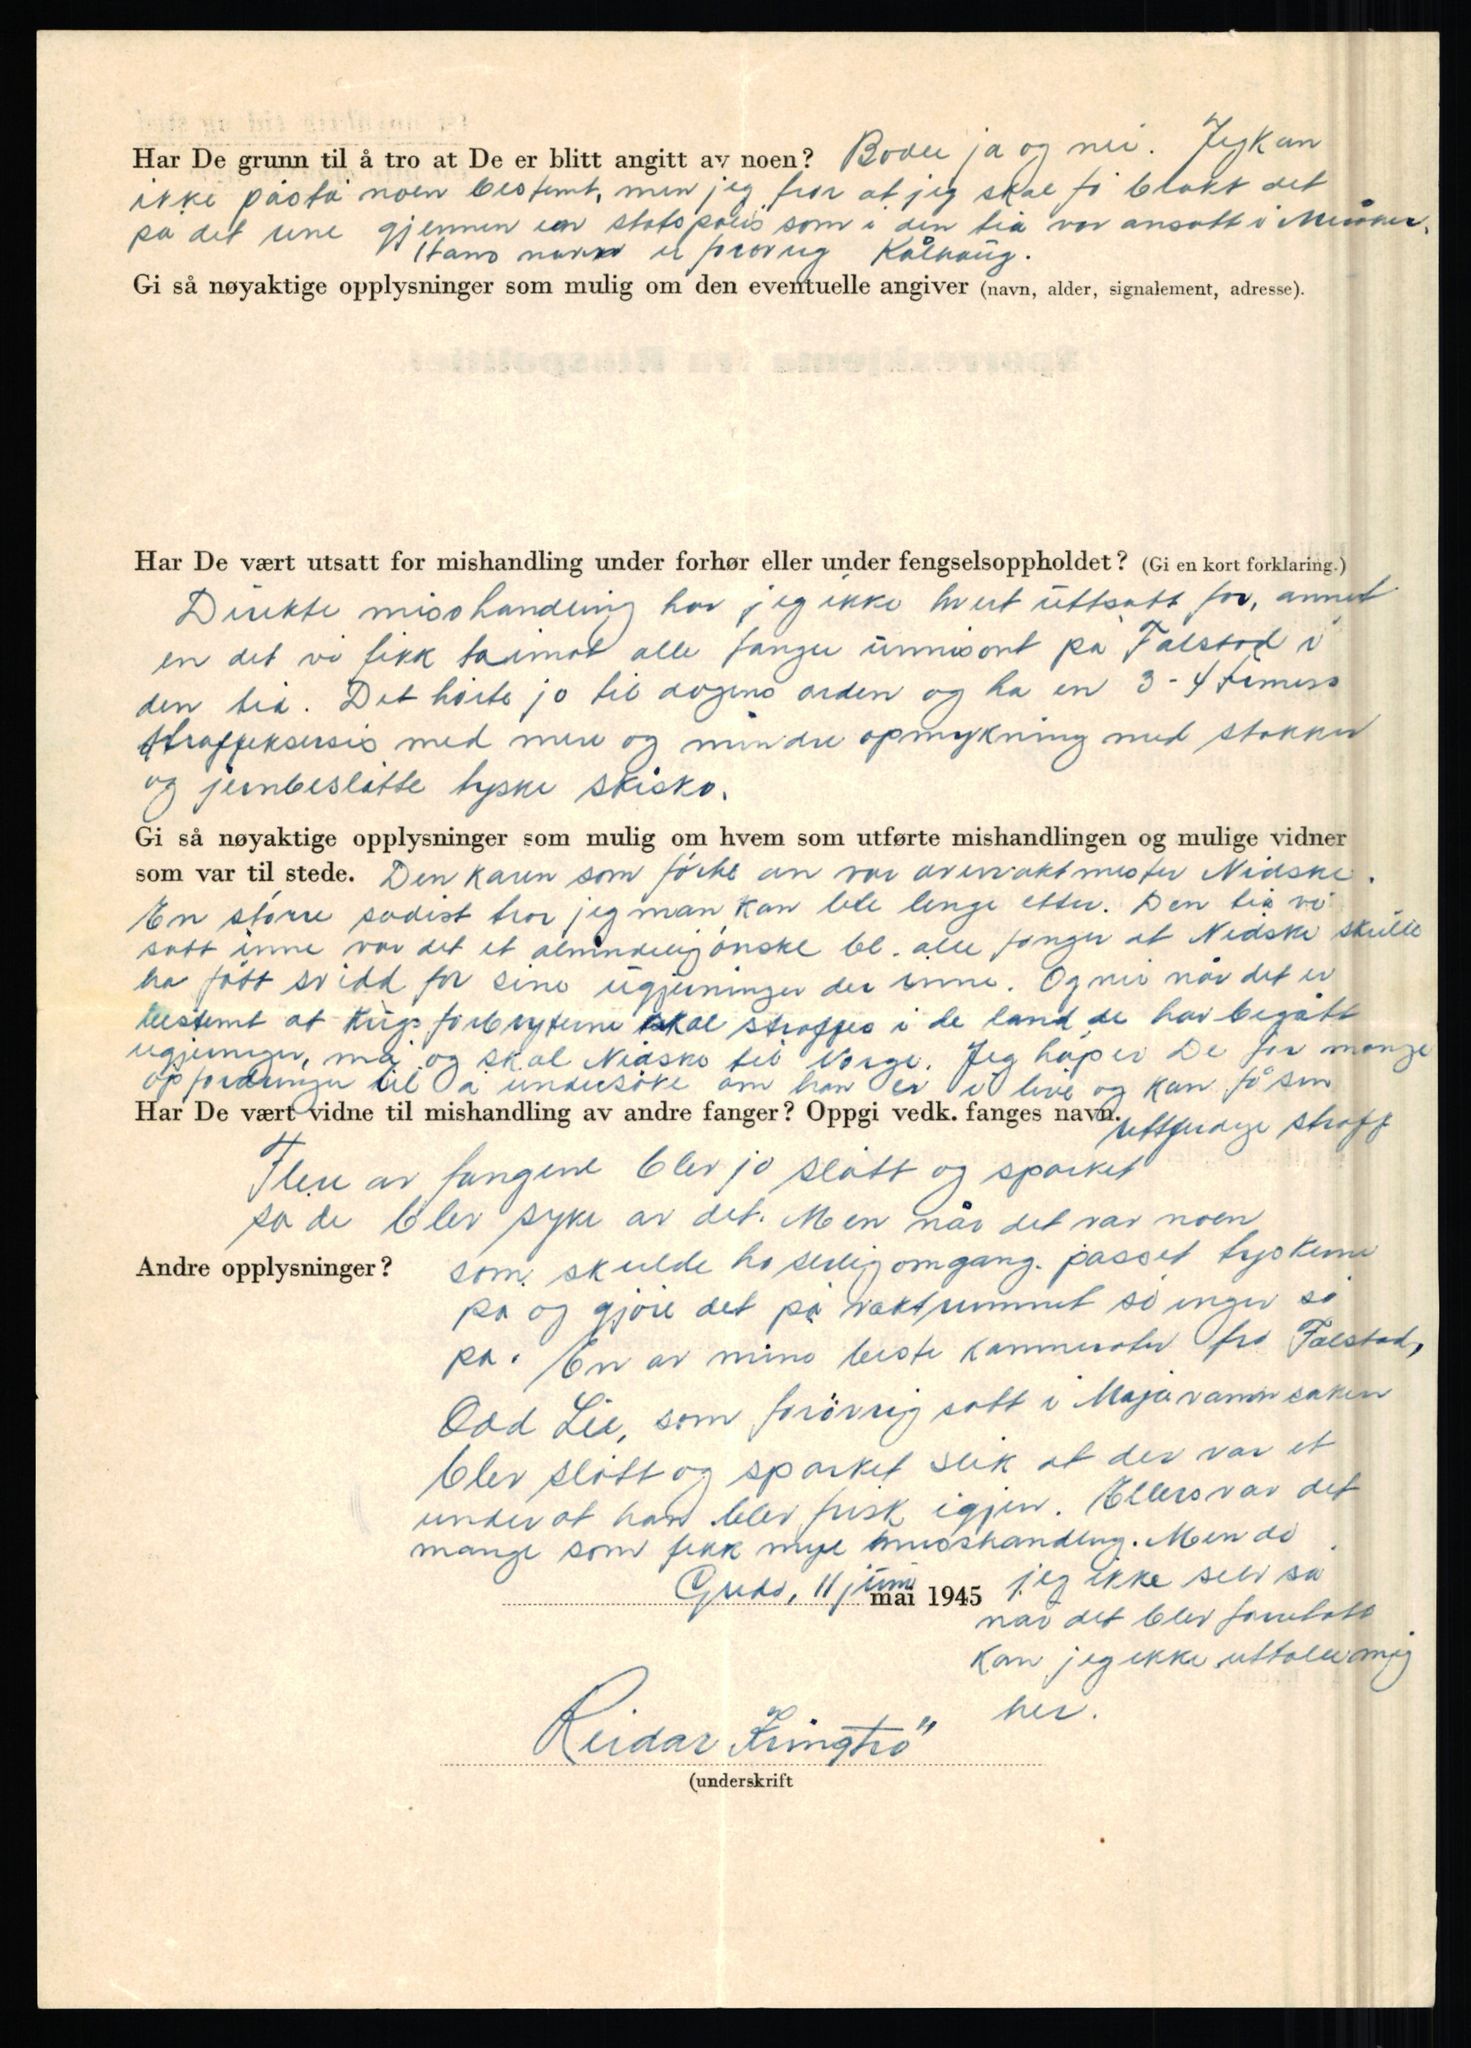 Har De grunn til å tro at De er blitt angitt av noen? Bode ja og nei. Jeg kan
ikke påstå noen bestemt, men jeg tror at jeg skal få brakt det
på det rene gjennem en statspolis som i den tia var ansatt i Meråker.
Hans navn er forøvrig Kålhaug.
Gi så nøyaktige opplysninger som mulig om den eventuelle angiver (navn, alder, signalement, adresse).
Har De vært utsatt for mishandling under forhør eller under fengselsoppholdet? (Gi en kort forklaring.)
Direkte misshandling har jeg ikke hvert uttsatt for, annet
en det vi fikk taimot alle fanger unnisont på Falstad i
den tia. Det hörte jo til dagens orden og ha en 3-4 timers
straffeksersis med mere og mindre opmykning med stokker
og jernbeslåtte tyske skisko.
Gi så nøyaktige opplysninger som mulig om hvem som utførte mishandlingen og mulige vidner
som var til stede. Den karen som förte an var overvaktmester Nidske.
En större sadist tror jeg man kan lete lenge etter. Den tia vi
satt inne var det et almindelig önske bl. alle fanger at Nidske skulle
ha fått svidd for sine ugjerninger der inne. Og nei når det er
bestemt at krigsforbryterne skal straffes i de land de har begått
ugjerninger, må og skal Nidske til Norge. Jeg håper De får mange
opfordringer til å undersöke om han er i live og kan få sin
rettferdige straff
Har De vært vidne til mishandling av andre fanger? Oppgi vedk. fanges navn.
Flere av fangene blev jo slått og sparket
så de blev syke av det. Men når det var noen
Andre opplysninger? som skulde ha serlig omgang. passet tyskerne
på og gjöre det på vaktrummet så ingen så
på. En av mine beste kammerater fra Falstad,
Odd Lie, som forövrig satt i Majavannsaken
blev slått og sparket slik at der var et
under at han blev frisk igjen. Ellers var det
mange som fikk mye misshandling. Men da
jeg ikke selv så
når det blev forretatt
kan jeg ikke uttale mig
her.
Gudå, 11 juni mai 1945
Reidar Kringtrö
(underskrift